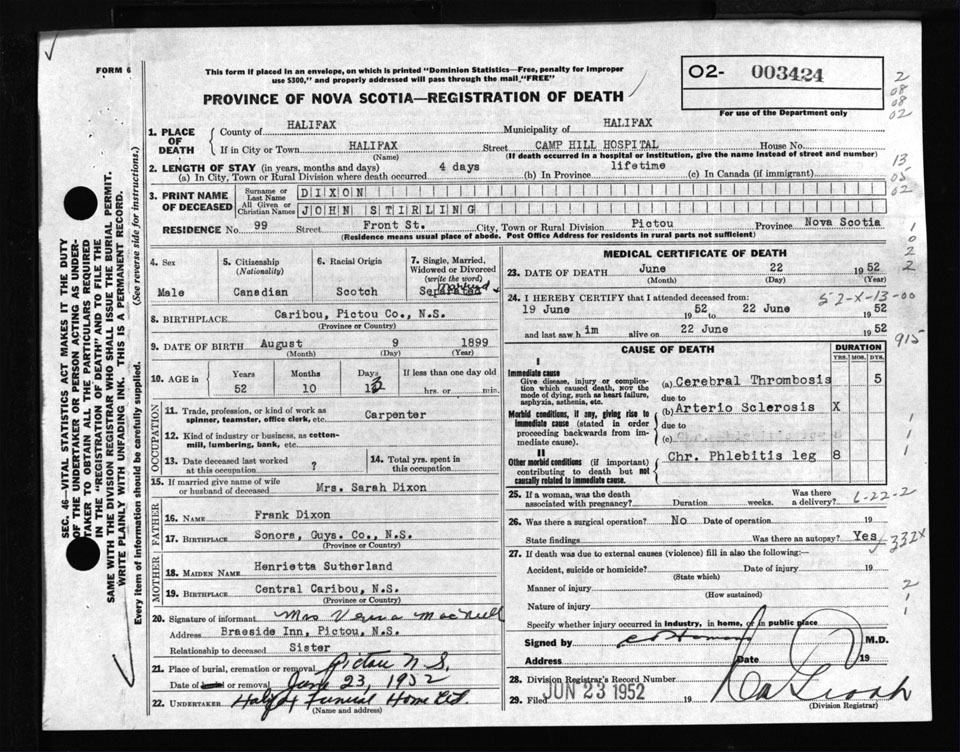 FORM 6
This form if placed in an envelope, on which is printed "Dominion Statistics—Free, penalty for improper
use $300," and properly addressed will pass through the mail "FREE"
PROVINCE OF NOVA SCOTIA—REGISTRATION OF DEATH
O2- 003424
For use of the Department only
2
08
08
02
13
05
02
1
0
2
2
SEC. 46—VITAL STATISTICS ACT MAKES IT THE DUTY
OF THE UNDERTAKER OR PERSON ACTING AS UNDER-
TAKER TO OBTAIN ALL THE PARTICULARS REQUIRED
IN THE "REGISTRATION OF DEATH" AND TO FILE THE
SAME WITH THE DIVISION REGISTRAR WHO SHALL ISSUE THE BURIAL PERMIT.
WRITE PLAINLY WITH UNFADING INK. THIS IS A PERMANENT RECORD.
Every item of information should be carefully supplied. (See reverse side for instructions.)
1. PLACE OF DEATH
County of HALIFAX Municipality of HALIFAX
If in City or Town HALIFAX Street CAMP HILL HOSPITAL House No.
(Name) (If death occurred in a hospital or institution, give the name instead of street and number)
2. LENGTH OF STAY (in years, months and days)
(a) In City, Town or Rural Division where death occurred 4 days (b) In Province lifetime (c) In Canada (if immigrant)
3. PRINT NAME OF DECEASED
Surname or Last Name DIXON
All Given or Christian Names JOHN STIRLING
RESIDENCE No. 99 Street Front St. City, Town or Rural Division Pictou Province Nova Scotia
(Residence means usual place of abode. Post Office Address for residents in rural parts not sufficient)
4. Sex
Male
5. Citizenship
(Nationality)
Canadian
6. Racial Origin
Scotch
7. Single, Married,
Widowed or Divorced
(write the word)
Married
Separated
8. BIRTHPLACE Caribou, Pictou Co., N.S.
(Province or Country)
9. DATE OF BIRTH August 9 1899
(Month) (Day) (Year)
10. AGE in Years Months Days If less than one day
52 10 13 hrs. or min.
OCCUPATION
11. Trade, profession, or kind of work as
spinner, teamster, office clerk, etc. Carpenter
12. Kind of industry or business, as cotton-
mill, lumbering, bank, etc.
13. Date deceased last worked
at this occupation ?
14. Total yrs. spent in
this occupation
15. If married give name of wife
or husband of deceased Mrs. Sarah Dixon
FATHER
16. NAME Frank Dixon
17. BIRTHPLACE Sonora, Guys. Co., N.S.
(Province or Country)
MOTHER
18. MAIDEN NAME Henrietta Sutherland
19. BIRTHPLACE Central Caribou, N.S.
(Province or Country)
20. Signature of informant Mrs Verna MacNeill
Address Braeside Inn, Pictou, N.S.
Relationship to deceased Sister
21. Place of burial, cremation or removal Pictou N.S.
Date of burial or removal June 23, 1952
22. UNDERTAKER Halifx Funeral Home Ltd.
(Name and address)
MEDICAL CERTIFICATE OF DEATH
23. DATE OF DEATH June 22 1952
(Month) (Day) (Year)
24. I HEREBY CERTIFY that I attended deceased from:
52-X-13-00
19 June 1952 to 22 June 1952
and last saw him alive on 22 June 1952
915
CAUSE OF DEATH
DURATION
YRS. MOS. DYS.
I
Immediate cause
Give disease, injury or complica-
tion which caused death, NOT the
mode of dying, such as heart failure,
asphyxia, asthenia, etc.
(a) Cerebral Thrombosis 5
due to
Morbid conditions, if any, giving rise to
immediate cause (stated in order
proceeding backwards from im-
mediate cause).
(b) Arterio Sclerosis X
due to
(c)
II
Other morbid conditions (if important)
contributing to death but not
causally related to immediate cause.
Chr. Phlebitis leg 8
1
1
1
25. If a woman, was the death
associated with pregnancy? Duration weeks. Was there
a delivery?
6-22-2
26. Was there a surgical operation? No Date of operation 19
State findings Was there an autopsy? Yes
332X
27. If death was due to external causes (violence) fill in also the following:—
Accident, suicide or homicide? Date of injury 19
(State which)
Manner of injury
(How sustained)
Nature of injury
2
1
1
Specify whether injury occurred in industry, in home, or in public place
Signed by M.D.
Address Date 19
28. Division Registrar's Record Number
29. Filed JUN 23 1952 19
(Division Registrar)